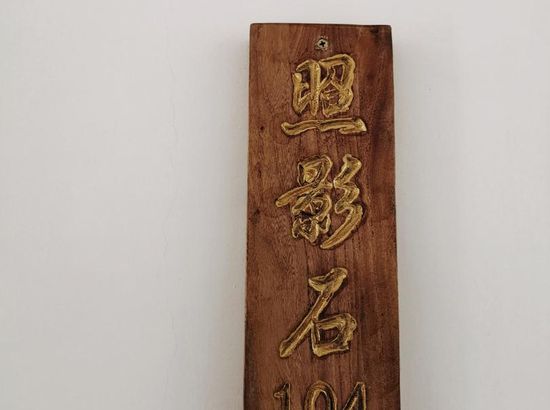 照影石
104